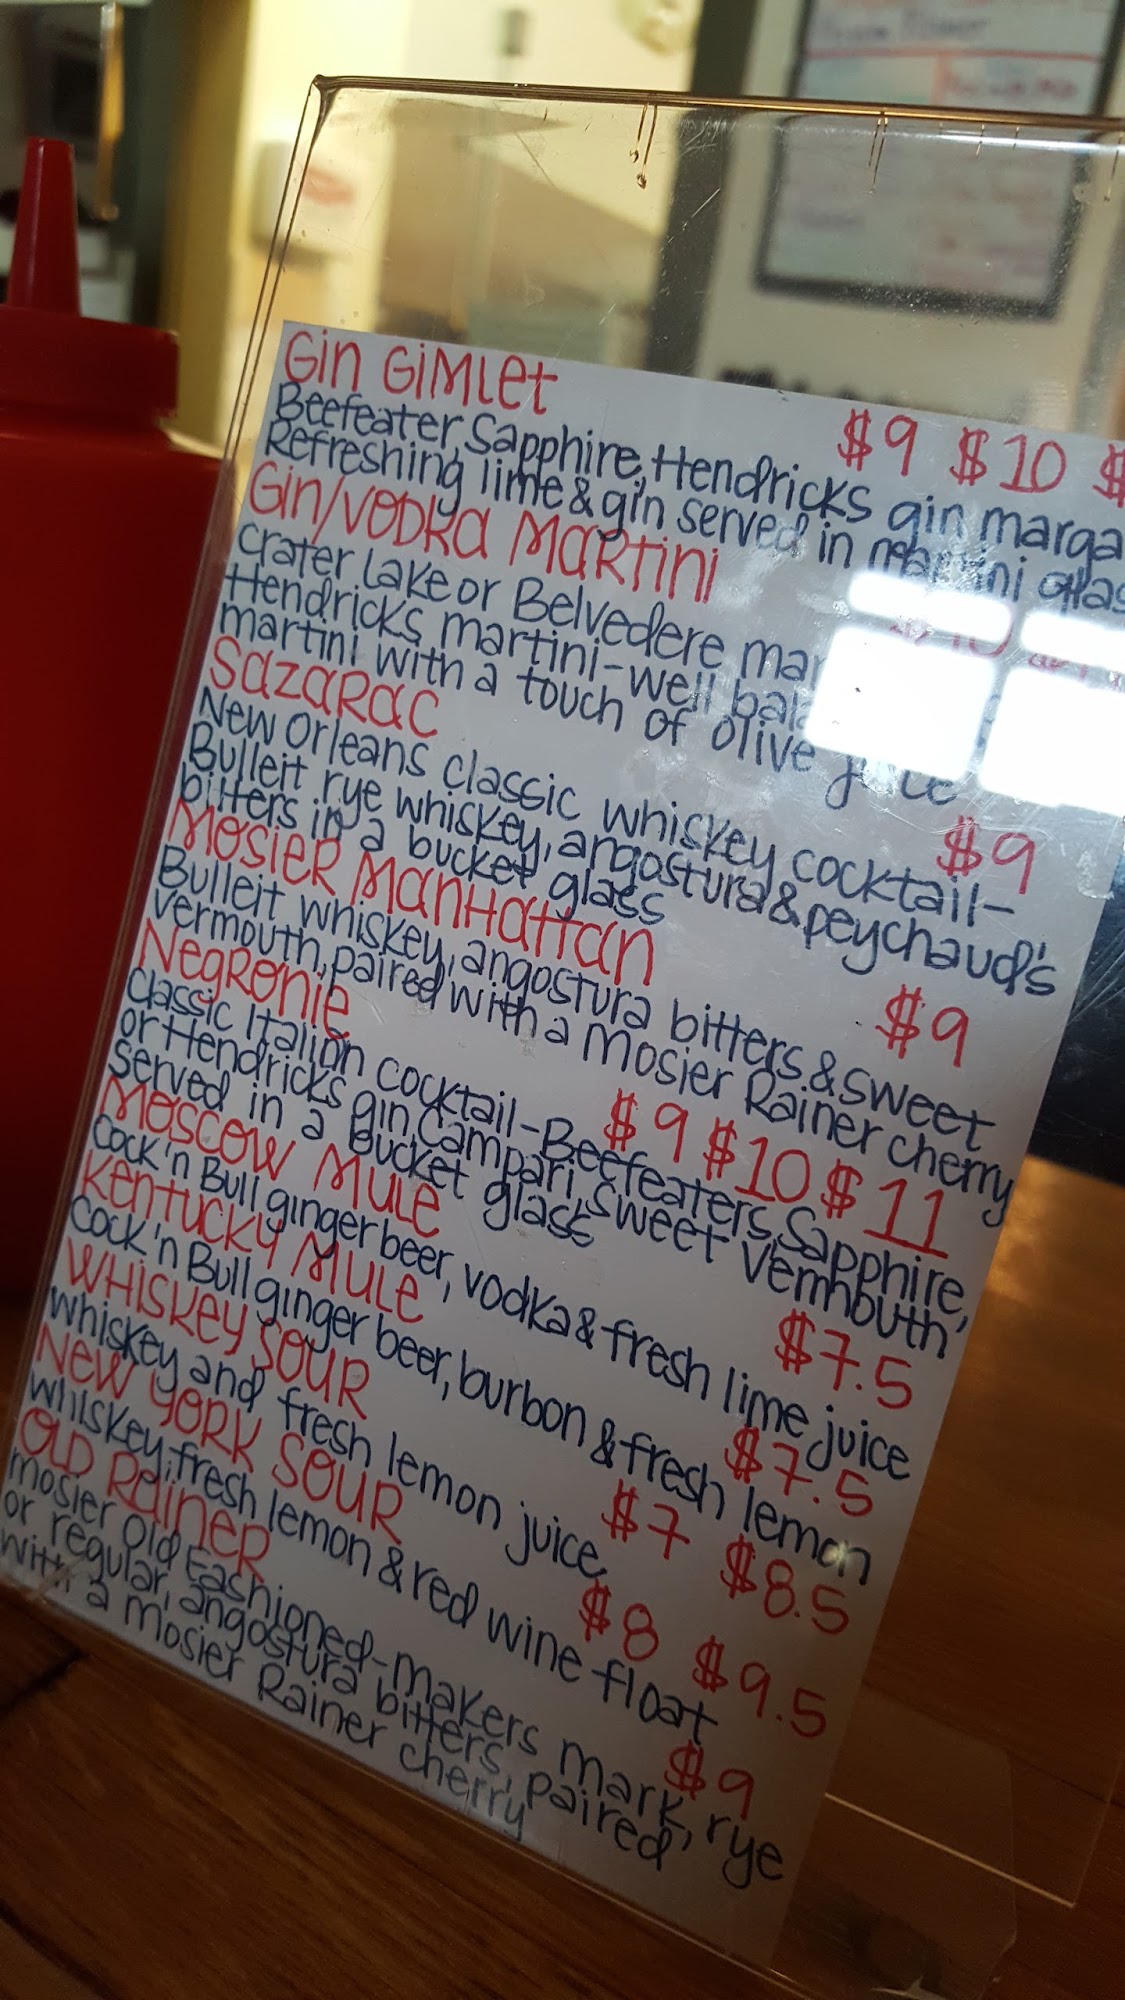 Gin Gimlet $9 $10
Beefeater, Sapphire, Hendricks gin
Refreshing lime & gin served in martini
Gin/Vodka Martini
Crater Lake or Belvedere
Hendricks martini-well
martini with a touch of olive juice
Sazarac $9
New Orleans classic whiskey cocktail-
Bulleit rye whiskey, angostura & peychaud's
bitters in a bucket glass
Mosier Manhattan $9
Bulleit whiskey, angostura bitters & sweet
vermouth, paired with a Mosier Rainer cherry
Negronie $9 $10 $11
Classic Italian cocktail-Beefeaters, Sapphire,
or Hendricks gin, Campari, sweet vermhouth,
served in a Bucket glass
Moscow Mule $7.5
Cock 'n Bull ginger beer, vodka & fresh lime juice
Kentucky Mule $7.5
Cock 'n Bull ginger beer, burbon & fresh lemon
Whiskey Sour $7 $8.5
whiskey and fresh lemon juice
New York Sour $8 $9.5
whiskey, fresh lemon & red wine float
Old Rainer $9
mosier old fashioned-makers mark, rye
or regular, angostura bitters, paired
with a mosier Rainer cherry